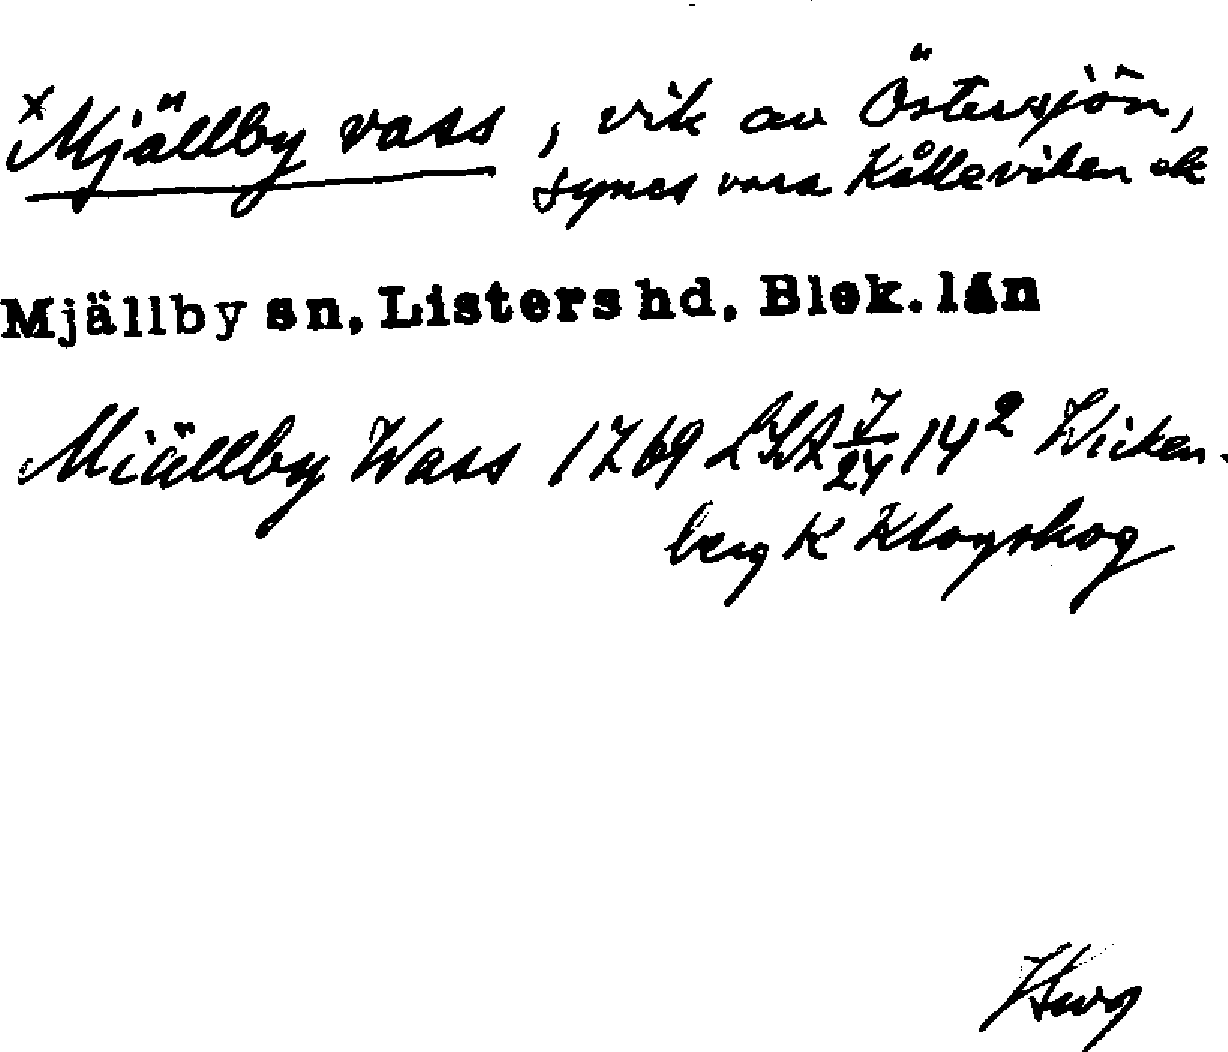 x Mjällby vass, vik av Östersjön,
synes vara Kålleviken ek
Mjällby sn, Listers hd, Blek. län
Miällby Wass 1769 LSA J/24 14² Wicken-
berg K Kloyskog